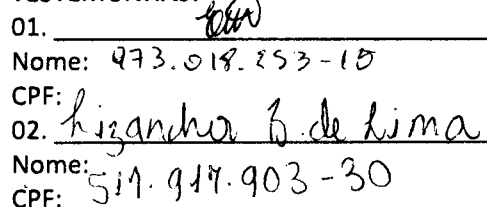 TESTEMUNHAS:
01.
Nome: 973.018.253-15
CPF:
02. Lizandra B. de Lima
Nome:
CPF: 517.917.903-30